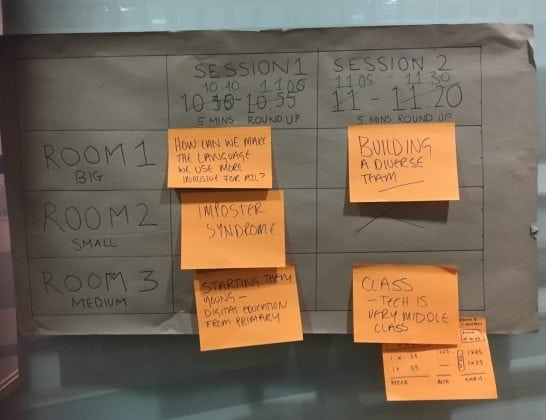 SESSION 1
10.40 11.00
10.30 - 10.55
5 MINS ROUND UP
SESSION 2
11.05 - 11.30
11 - 11.20
5 MINS ROUND UP
ROOM 1
BIG
HOW CAN WE MAKE
THE LANGUAGE
WE USE MORE
INCLUSIVE FOR ALL?
BUILDING
A DIVERSE
TEAM
ROOM 2
SMALL
IMPOSTER
SYNDROME
ROOM 3
MEDIUM
STARTING THEM
YOUNG -
DIGITAL EDUCATION
FROM PRIMARY
CLASS
- TECH IS
VERY MIDDLE
CLASS
1 x 25
1x25
1x25
1x25